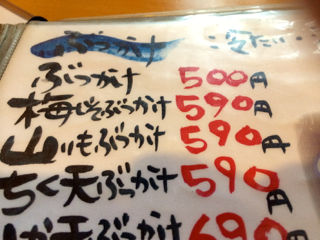 ぶっかけ 冷たい
ぶっかけ 500円
梅じそぶっかけ 590円
山いもぶっかけ 590円
ちく天ぶっかけ 590円
いか天ぶっかけ 690円